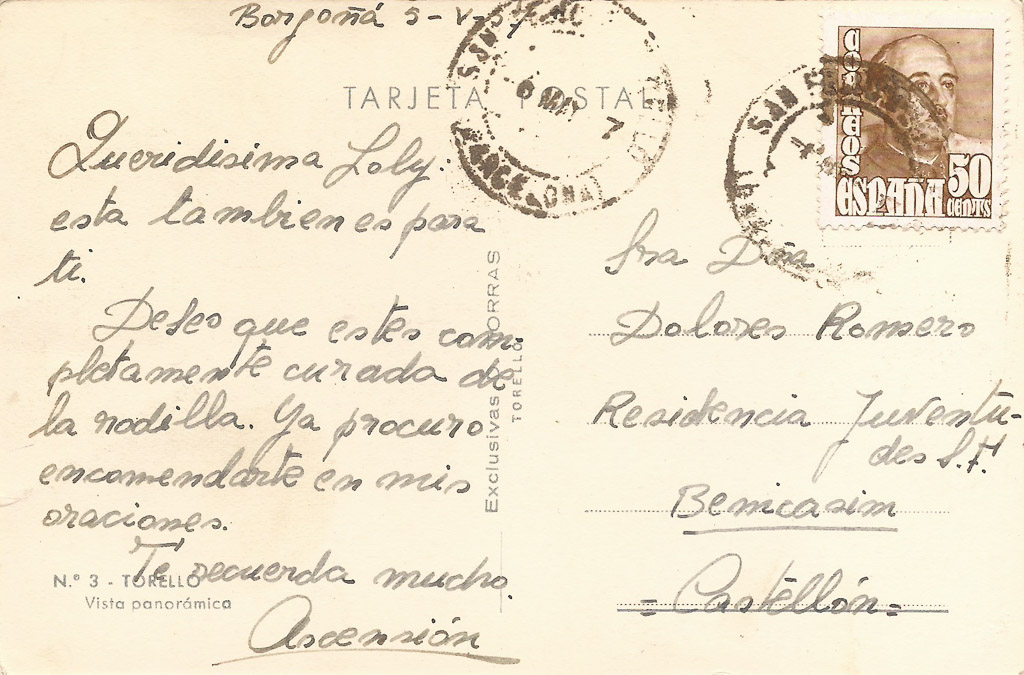 Borgoñá 5-V-57
TARJETA POSTAL
Queridisima Loly:
esta tambien es para
ti.
Deseo que estes com
pletamente curada de
la rodilla. Ya procuro
encomendarte en mis
oraciones.
Te recuerda mucho.
Ascensión
N.º 3 - TORELLO
Vista panorámica
Exclusivas PORRAS
TORELLO
6 MAY 7
BARCELONA
SAN
CORREOS
ESPAÑA
50
CENTS
Sra Dña
Dolores Romero
Residencia Juventu-
des S.F.
Benicasim
= Castéllón =